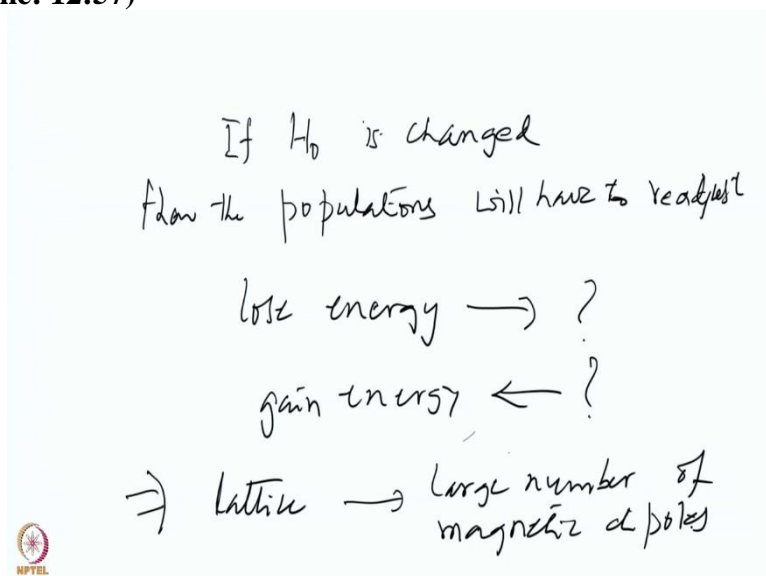 If H₀ is changed
then the populations will have to readjust
lose energy → ?
gain energy ← ?
⇒ Lattice → large number of
magnetic dipoles
NPTEL